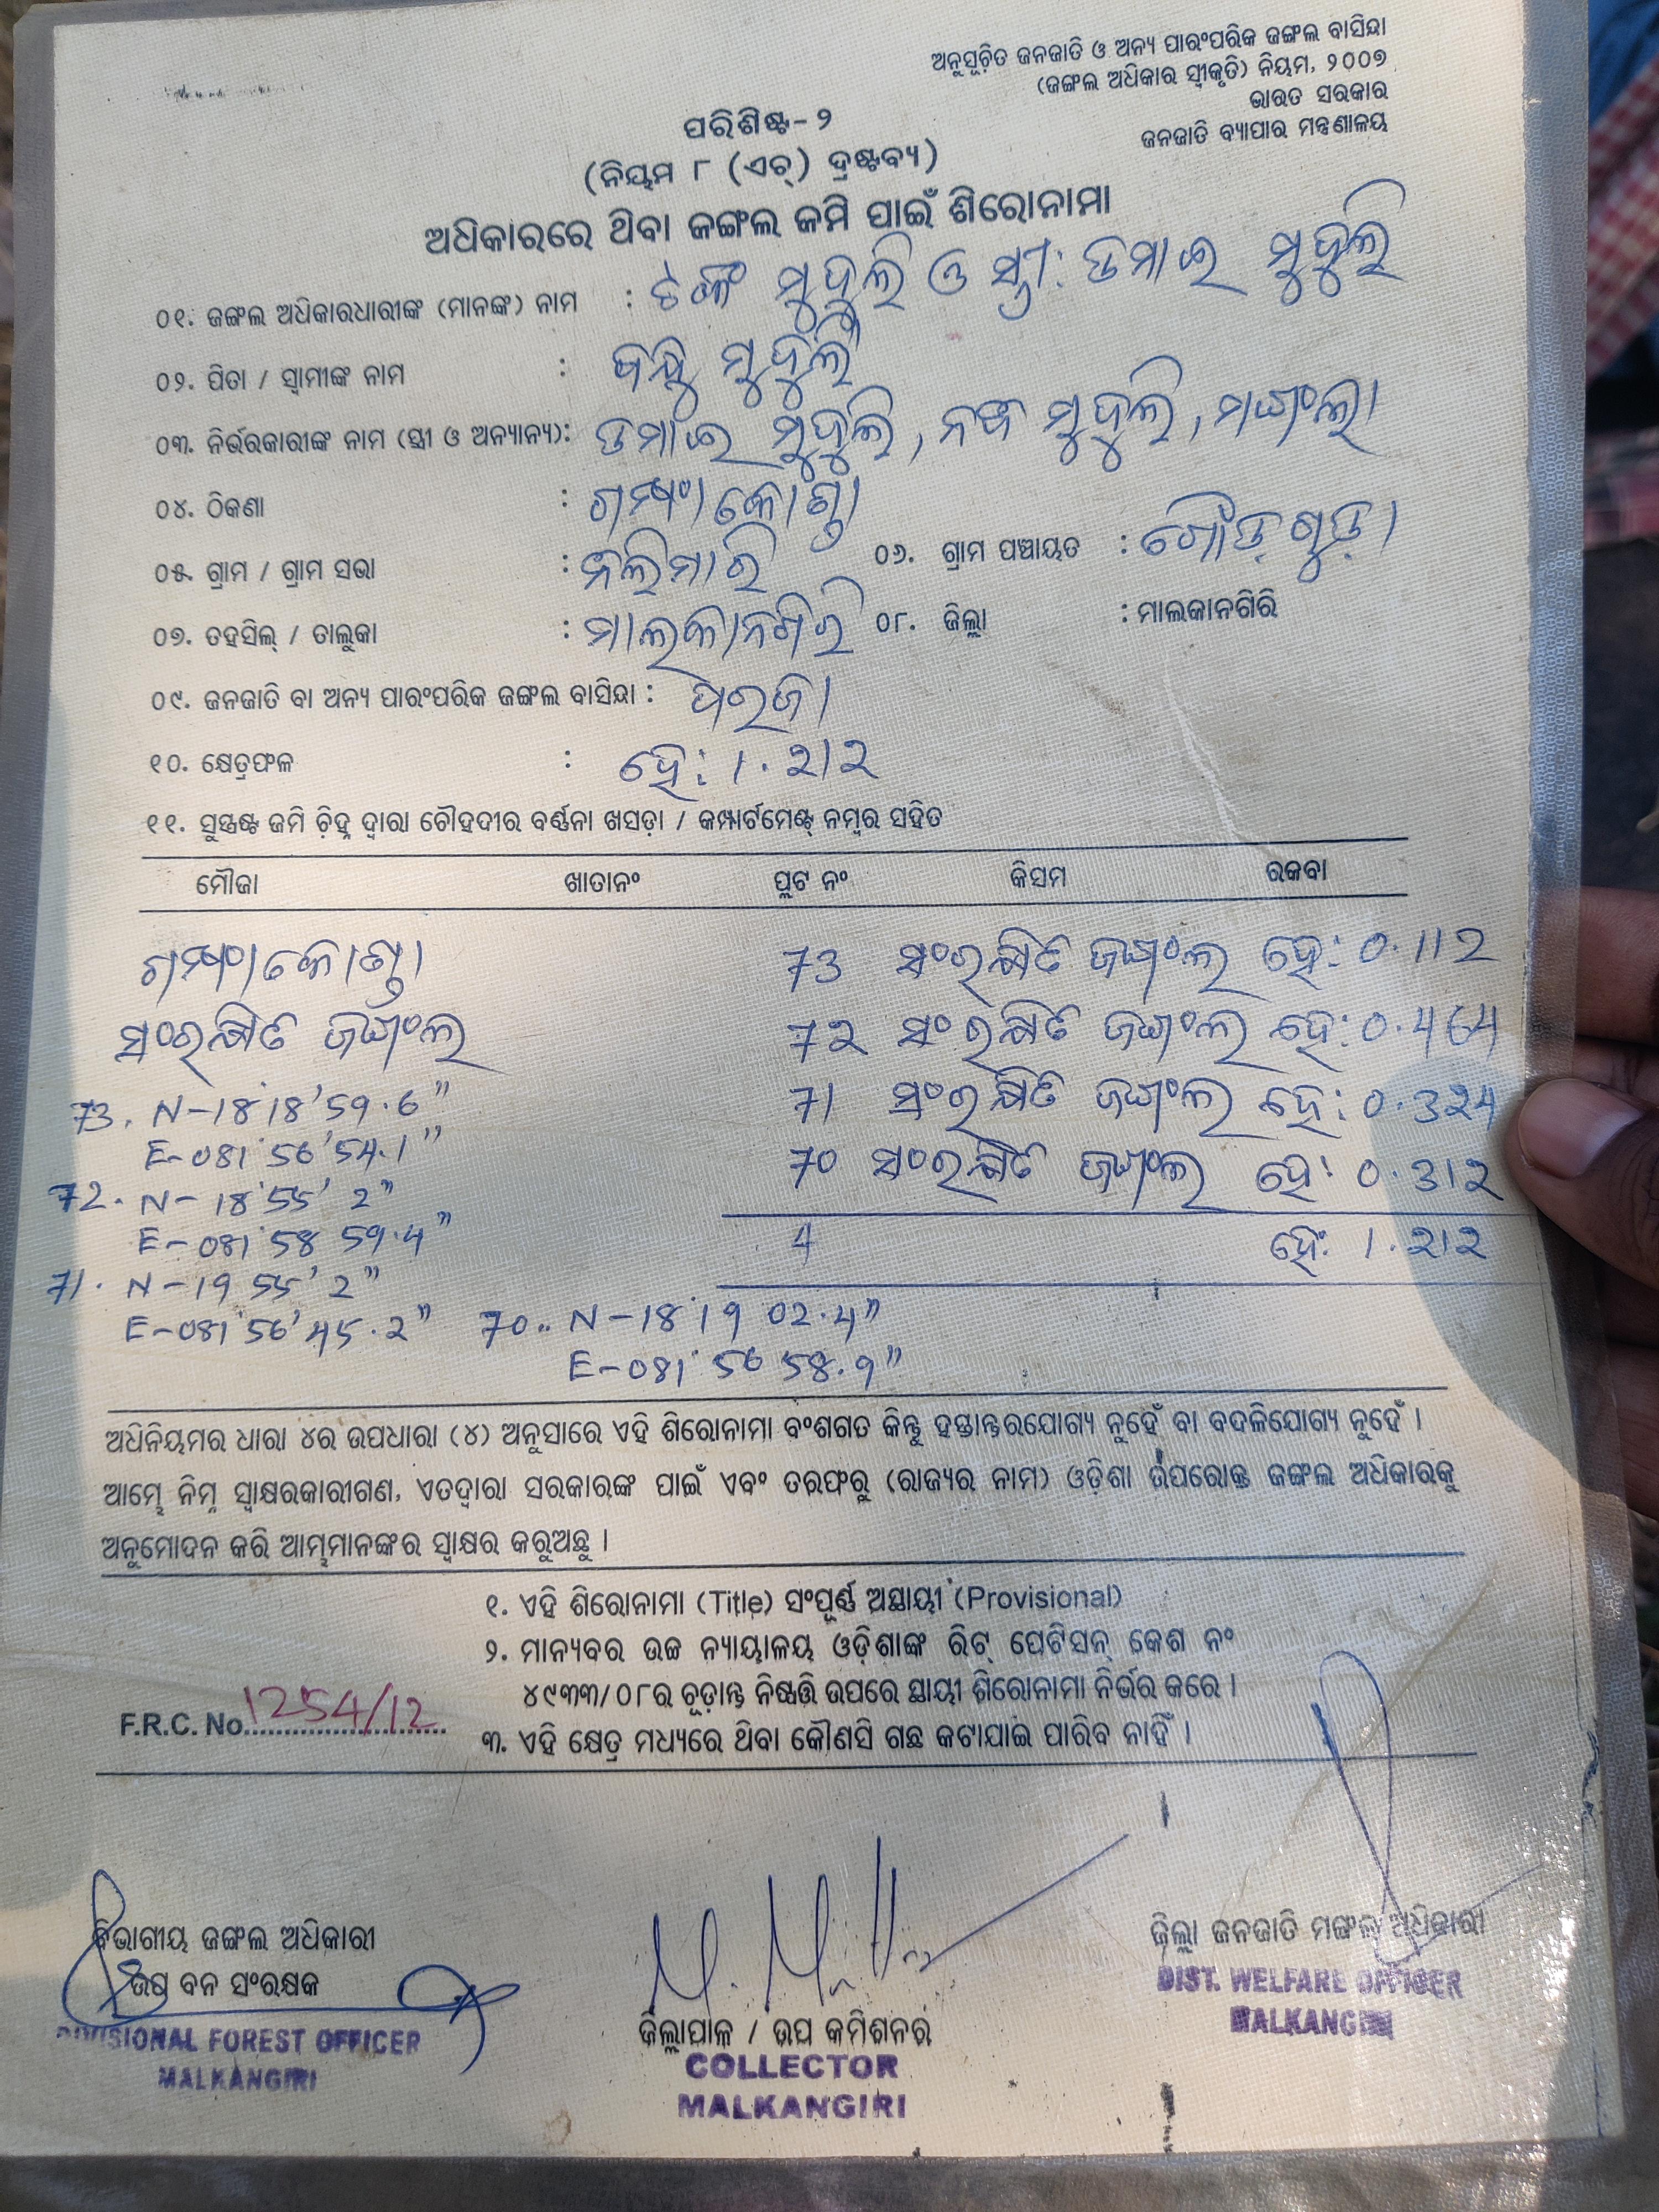 ଅନୁସୂଚିତ ଜନଜାତି ଓ ଅନ୍ୟ ପାରଂପରିକ ଜଙ୍ଗଲ ବାସିନ୍ଦା
(ଜଙ୍ଗଲ ଅଧିକାର ସ୍ୱୀକୃତି) ନିୟମ, ୨୦୦୭
ଭାରତ ସରକାର
ଜନଜାତି ବ୍ୟାପାର ମନ୍ତ୍ରଣାଳୟ
ପରିଶିଷ୍ଟ-୨
(ନିୟମ ୮ (ଏଚ୍) ଦ୍ରଷ୍ଟବ୍ୟ)
ଅଧିକାରରେ ଥିବା ଜଙ୍ଗଲ ଜମି ପାଇଁ ଶିରୋନାମା
୦୧. ଜଙ୍ଗଲ ଅଧିକାରଧାରୀଙ୍କ (ମାନଙ୍କ) ନାମ : ଟଙ୍କ ମୁଦୁଲି ଓ ସ୍ତ୍ରୀ: ଡମାଇ ମୁଦୁଲି
୦୨. ପିତା / ସ୍ୱାମୀଙ୍କ ନାମ : ମୁଦୁଲି
୦୩. ନିର୍ଭରକାରୀଙ୍କ ନାମ (ସ୍ତ୍ରୀ ଓ ଅନ୍ୟାନ୍ୟ): ଡମାଇ ମୁଦୁଲି, ମୁଦୁଲି, ମଙ୍ଗଂଲା
୦୪. ଠିକଣା :
୦୫. ଗ୍ରାମ / ଗ୍ରାମ ସଭା : ୦୬. ଗ୍ରାମ ପଞ୍ଚାୟତ : ଗୌଡ଼ଗୁଡ଼ା
୦୭. ତହସିଲ୍ / ତାଲୁକା : ମାଲକାନଗିରି ୦୮. ଜିଲ୍ଲା : ମାଲକାନଗିରି
୦୯. ଜନଜାତି ବା ଅନ୍ୟ ପାରଂପରିକ ଜଙ୍ଗଲ ବାସିନ୍ଦା : ପରଜା
୧୦. କ୍ଷେତ୍ରଫଳ : ହେ: 1.212
୧୧. ସୁସ୍ପଷ୍ଟ ଜମି ଚିହ୍ନ ଦ୍ୱାରା ଚୌହଦୀର ବର୍ଣ୍ଣନା ଖସଡ଼ା / କମ୍ପାର୍ଟମେଣ୍ଟ୍ ନମ୍ବର ସହିତ
ମୌଜା ଖାତାନଂ ପ୍ଲଟ ନଂ କିସମ ରକବା
73 ସଂରକ୍ଷିତ ଜଙ୍ଗଂଲ ହେ: 0.112
ସଂରକ୍ଷିତ ଜଙ୍ଗଂଲ 72 ସଂରକ୍ଷିତ ଜଙ୍ଗଂଲ ହେ: 0.464
73. N-18°18'59.6" 71 ସଂରକ୍ଷିତ ଜଙ୍ଗଂଲ ହେ: 0.324
E-081°56'54.1" 70 ସଂରକ୍ଷିତ ଜଙ୍ଗଂଲ ହେ: 0.312
72. N-18°55' 2"
E-081°58 59.4" 4 ହେ: 1.212
71. N-19 55' 2"
E-081°56'45.2" 70.. N-18°19 02.4"
E-081°56 58.9"
ଅଧିନିୟମର ଧାରା ୪ର ଉପଧାରା (୪) ଅନୁସାରେ ଏହି ଶିରୋନାମା ବଂଶଗତ କିନ୍ତୁ ହସ୍ତାନ୍ତରଯୋଗ୍ୟ ନୁହେଁ ବା ବଦଳିଯୋଗ୍ୟ ନୁହେଁ ।
ଆମ୍ଭେ ନିମ୍ନ ସ୍ୱାକ୍ଷରକାରୀଗଣ, ଏତଦ୍ୱାରା ସରକାରଙ୍କ ପାଇଁ ଏବଂ ତରଫରୁ (ରାଜ୍ୟର ନାମ) ଓଡ଼ିଶା ଉପରୋକ୍ତ ଜଙ୍ଗଲ ଅଧିକାରକୁ
ଅନୁମୋଦନ କରି ଆମ୍ଭମାନଙ୍କର ସ୍ୱାକ୍ଷର କରୁଅଛୁ ।
୧. ଏହି ଶିରୋନାମା (Title) ସଂପୂର୍ଣ୍ଣ ଅସ୍ଥାୟୀ (Provisional)
୨. ମାନ୍ୟବର ଉଚ୍ଚ ନ୍ୟାୟାଳୟ ଓଡ଼ିଶାଙ୍କ ରିଟ୍ ପେଟିସନ୍ କେଶ ନଂ
୪୯୩୩/୦୮ର ଚୂଡ଼ାନ୍ତ ନିଷ୍ପତ୍ତି ଉପରେ ସ୍ଥାୟୀ ଶିରୋନାମା ନିର୍ଭର କରେ ।
F.R.C. No.1254/12
୩. ଏହି କ୍ଷେତ୍ର ମଧ୍ୟରେ ଥିବା କୌଣସି ଗଛ କଟାଯାଇ ପାରିବ ନାହିଁ ।
ବିଭାଗୀୟ ଜଙ୍ଗଲ ଅଧିକାରୀ
ଉପ ବନ ସଂରକ୍ଷକ
DIVISIONAL FOREST OFFICER
MALKANGIRI
ଜିଲ୍ଲାପାଳ / ଉପ କମିଶନର
COLLECTOR
MALKANGIRI
ଜିଲ୍ଲା ଜନଜାତି ମଙ୍ଗଳ ଅଧିକାରୀ
DIST. WELFARE OFFICER
MALKANGIRI